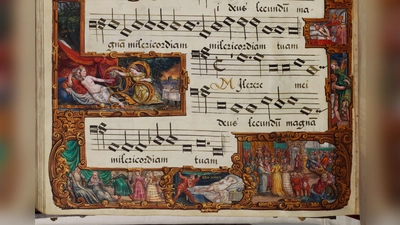 i deus secundũ ma-
gnã misericordiam misericordiam tuam
Miserere mei
deus secundũ magnã
misericordiam tuam